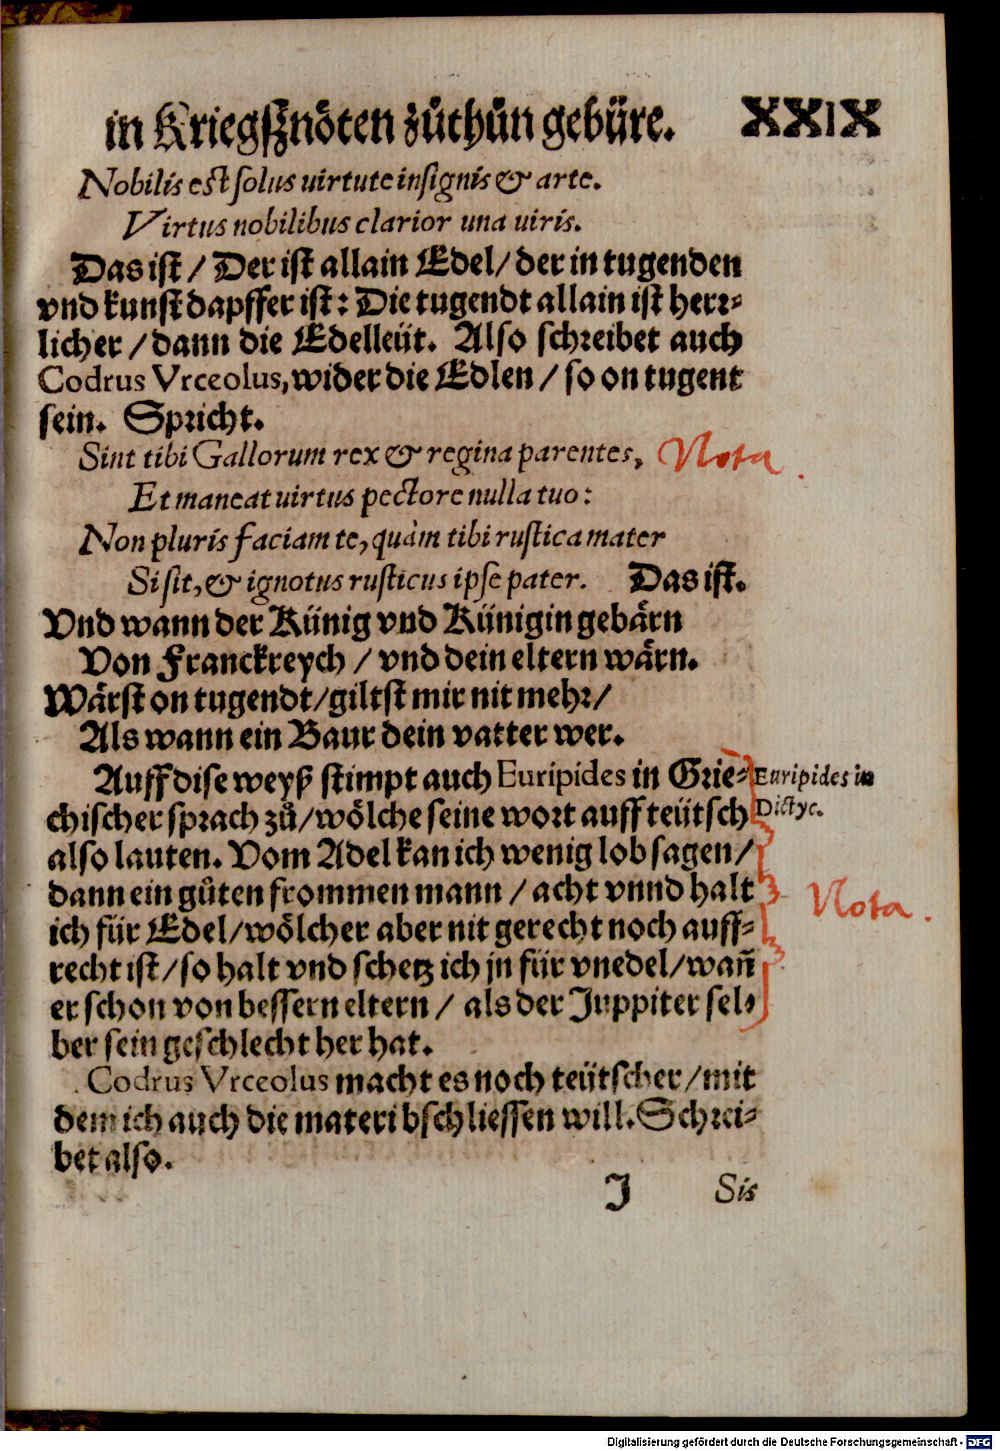 in Kriegßnöten zůthůn gebüre. XXIX
Nobilis est solus uirtute insignis & arte.
Virtus nobilibus clarior una uiris.
Das ist / Der ist allain Edel / der in tugenden
vnd kunst dapffer ist: Die tugendt allain ist herr⸗
licher / dann die Edelleüt. Also schreibet auch
Codrus Vrceolus, wider die Edlen / so on tugent
sein. Spricht.
Sint tibi Gallorum rex & regina parentes, Nota.
Et maneat uirtus pectore nulla tuo:
Non pluris faciam te, quàm tibi rustica mater
Si sit, & ignotus rusticus ipse pater. Das ist.
Vnd wann der Künig vnd Künigin gebärn
Von Franckreych / vnd dein eltern wärn.
Wärst on tugendt / giltst mir nit mehr /
Als wann ein Baur dein vatter wer.
Auff dise weyß stimpt auch Euripides in Grie⸗
Euripides in
Dictyc.
chischer sprach zů / wölche seine wort auff teütsch
also lauten. Vom Adel kan ich wenig lob sagen /
dann ein gůten frommen mann / acht vnnd halt
ich für Edel / wölcher aber nit gerecht noch auff⸗
Nota.
recht ist / so halt vnd schetz ich jn für vnedel / wañ
er schon von bessern eltern / als der Juppiter sel⸗
ber sein geschlecht her hat.
Codrus Vrceolus macht es noch teütscher / mit
dem ich auch die materi bschliessen will. Schrei⸗
bet also.
J Sis
Digitalisierung gefördert durch die Deutsche Forschungsgemeinschaft - DFG